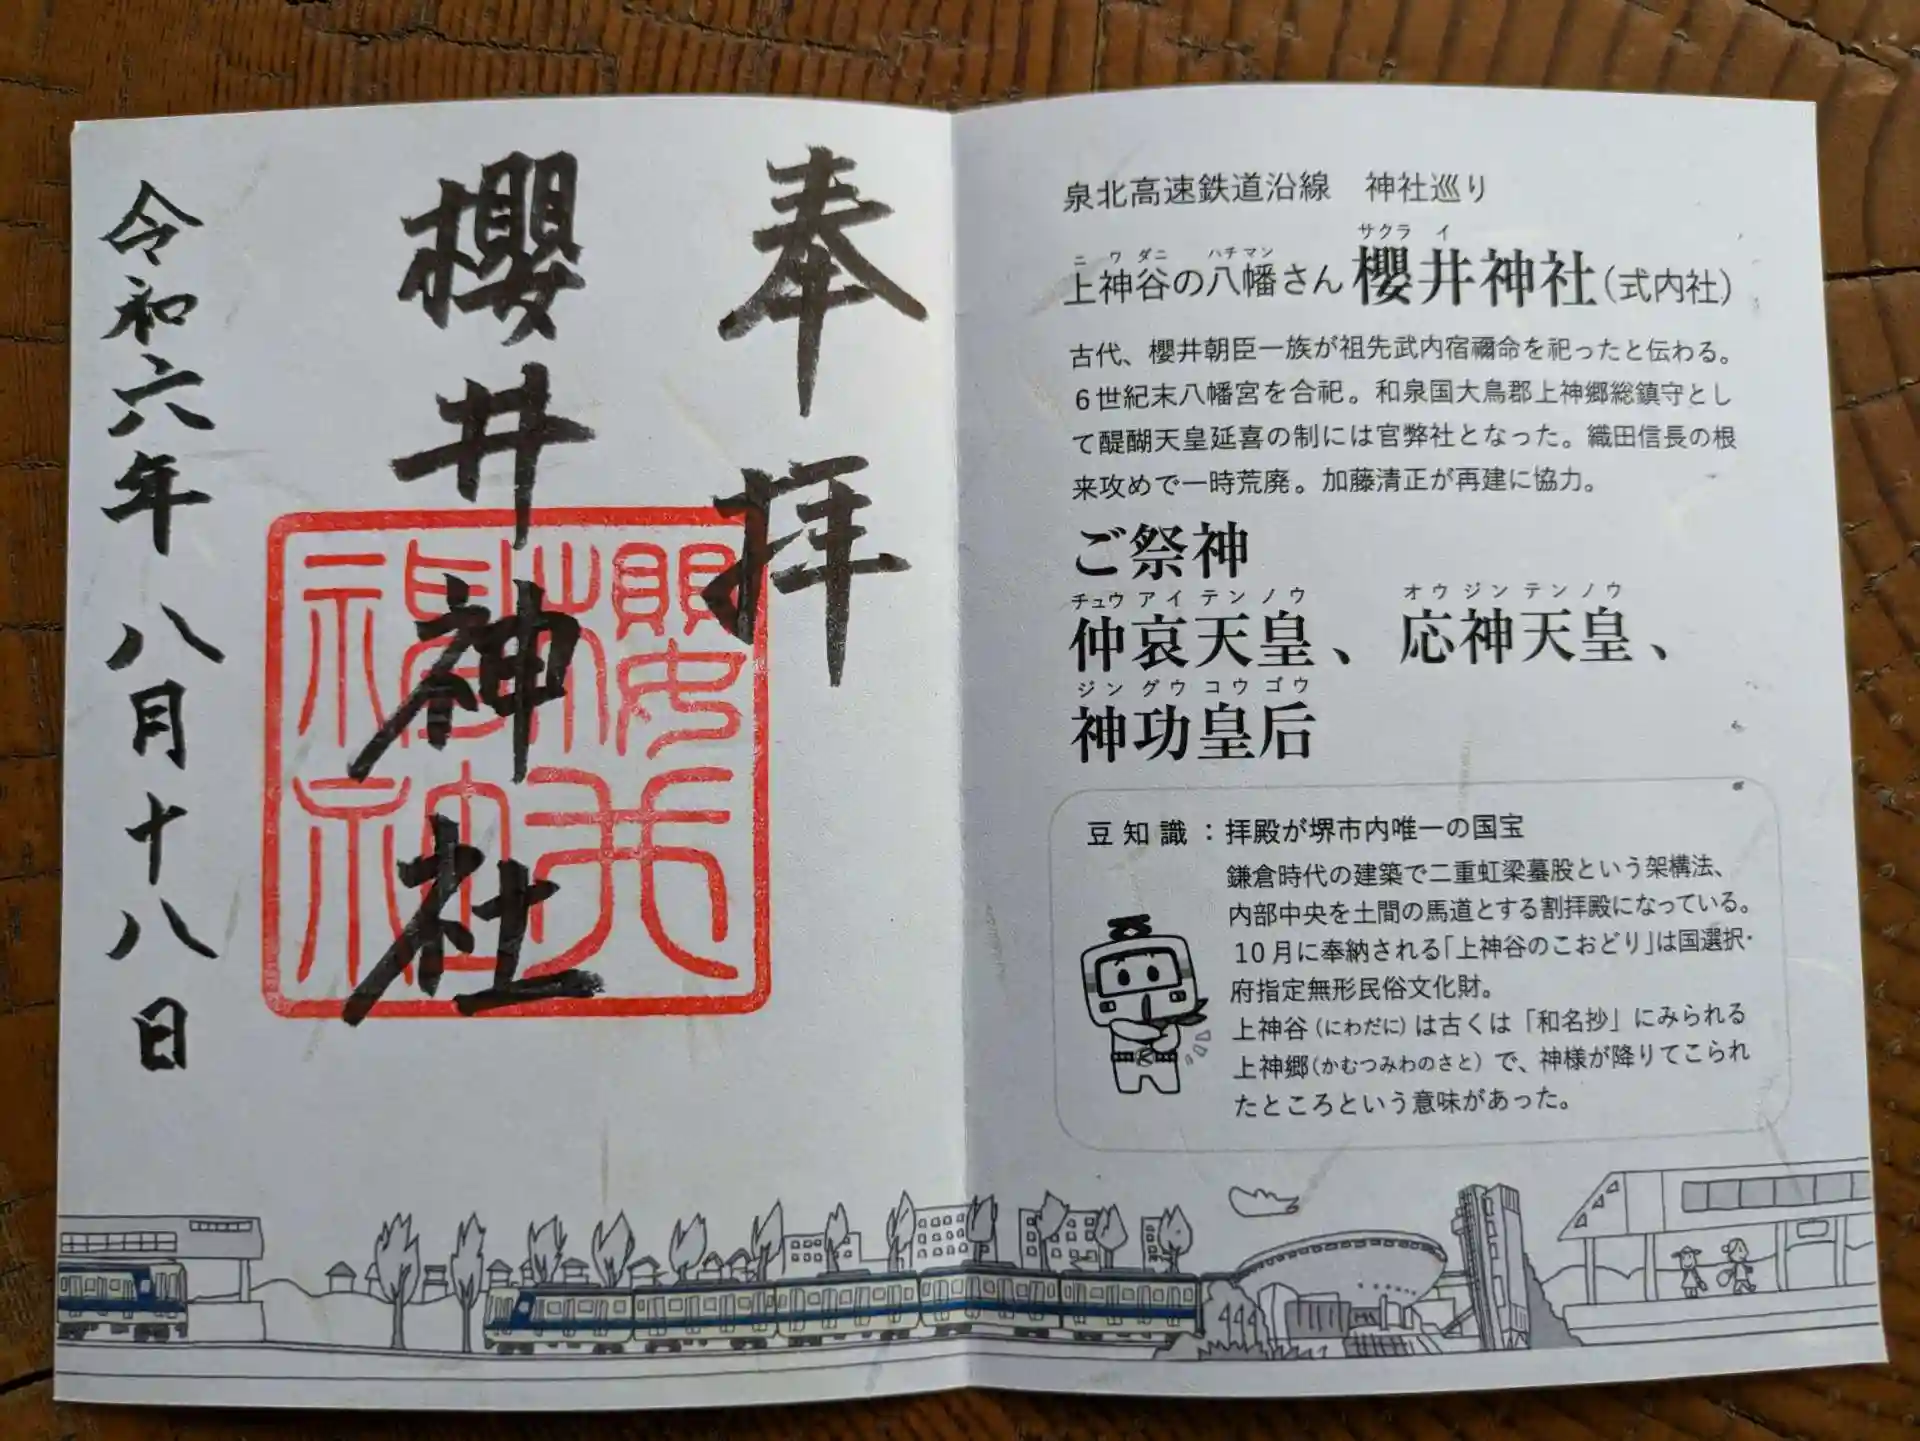 奉拝
櫻井神社
令和六年八月十八日
泉北高速鉄道沿線　神社巡り
ニワダニ　ハチマン　サクライ
上神谷の八幡さん 櫻井神社（式内社）
古代、櫻井朝臣一族が祖先武内宿禰命を祀ったと伝わる。
6世紀末八幡宮を合祀。和泉国大鳥郡上神郷総鎮守とし
て醍醐天皇延喜の制には官弊社となった。織田信長の根
来攻めで一時荒廃。加藤清正が再建に協力。
ご祭神
チュウアイテンノウ　オウジンテンノウ
仲哀天皇、応神天皇、
ジングウコウゴウ
神功皇后
豆知識：拝殿が堺市内唯一の国宝
鎌倉時代の建築で二重虹梁蟇股という架構法、
内部中央を土間の馬道とする割拝殿になっている。
10月に奉納される「上神谷のこおどり」は国選択・
府指定無形民俗文化財。
上神谷（にわだに）は古くは「和名抄」にみられる
上神郷（かむつみわのさと）で、神様が降りてこられ
たところという意味があった。